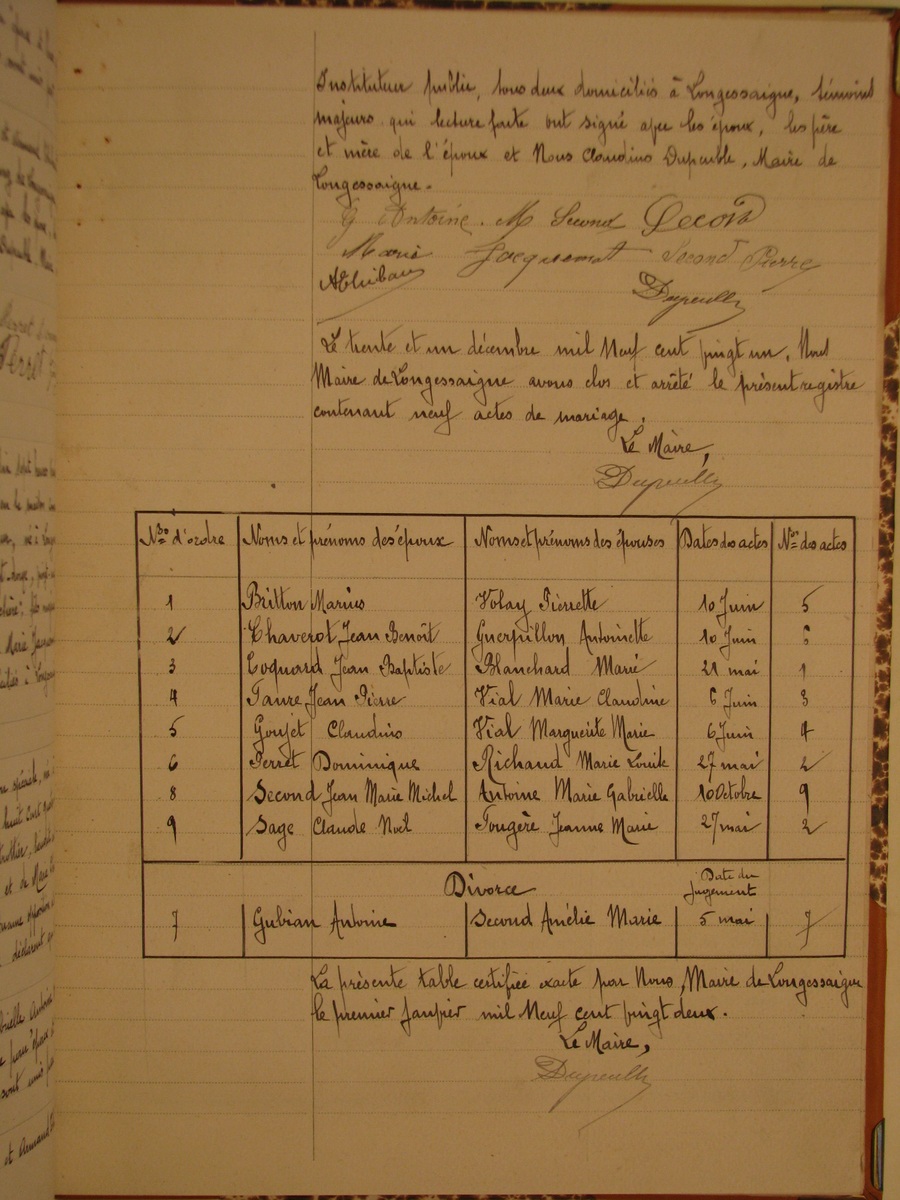 Instituteur public, tous deux domiciliés à Longessaigne, témoins
majeurs qui lecture faite ont signé avec les époux, les père
et mère de l'époux et Nous Claudius Dupeuble, Maire de
Longessaigne.
G Antoine. M Second Second
Marie Jacquemot Second Pierre
AThibau
Dupeuble
Le trente et un décembre mil Neuf cent vingt un, Nous
Maire de Longessaigne avons clos et arrêté le présent registre
contenant neuf actes de mariage.
Le Maire,
Dupeuble
Nos d'ordre Noms et prénoms des époux Noms et prénoms des épouses Dates des actes Nos des actes
1 Britton Marius Volay Pierrette 10 Juin 5
2 Chaverot Jean Benoît Guerpillon Antoinette 10 Juin 6
3 Coquard Jean Baptiste Blanchard Marie 21 mai 1
4 Faure Jean Pierre Vial Marie Claudine 6 Juin 3
5 Goujet Claudius Vial Marguerite Marie 6 Juin 4
6 Perret Dominique Richaud Marie Louise 27 mai 2
8 Second Jean Marie Michel Antoine Marie Gabrielle 10 Octobre 9
9 Sage Claude Noël Fougère Jeanne Marie 27 mai 2
Divorce Date du jugement
7 Gubian Antoine Second Amélie Marie 5 mai 7
La présente table certifiée exacte par Nous, Maire de Longessaigne
le premier Janvier mil Neuf cent vingt deux.
Le Maire,
Dupeuble